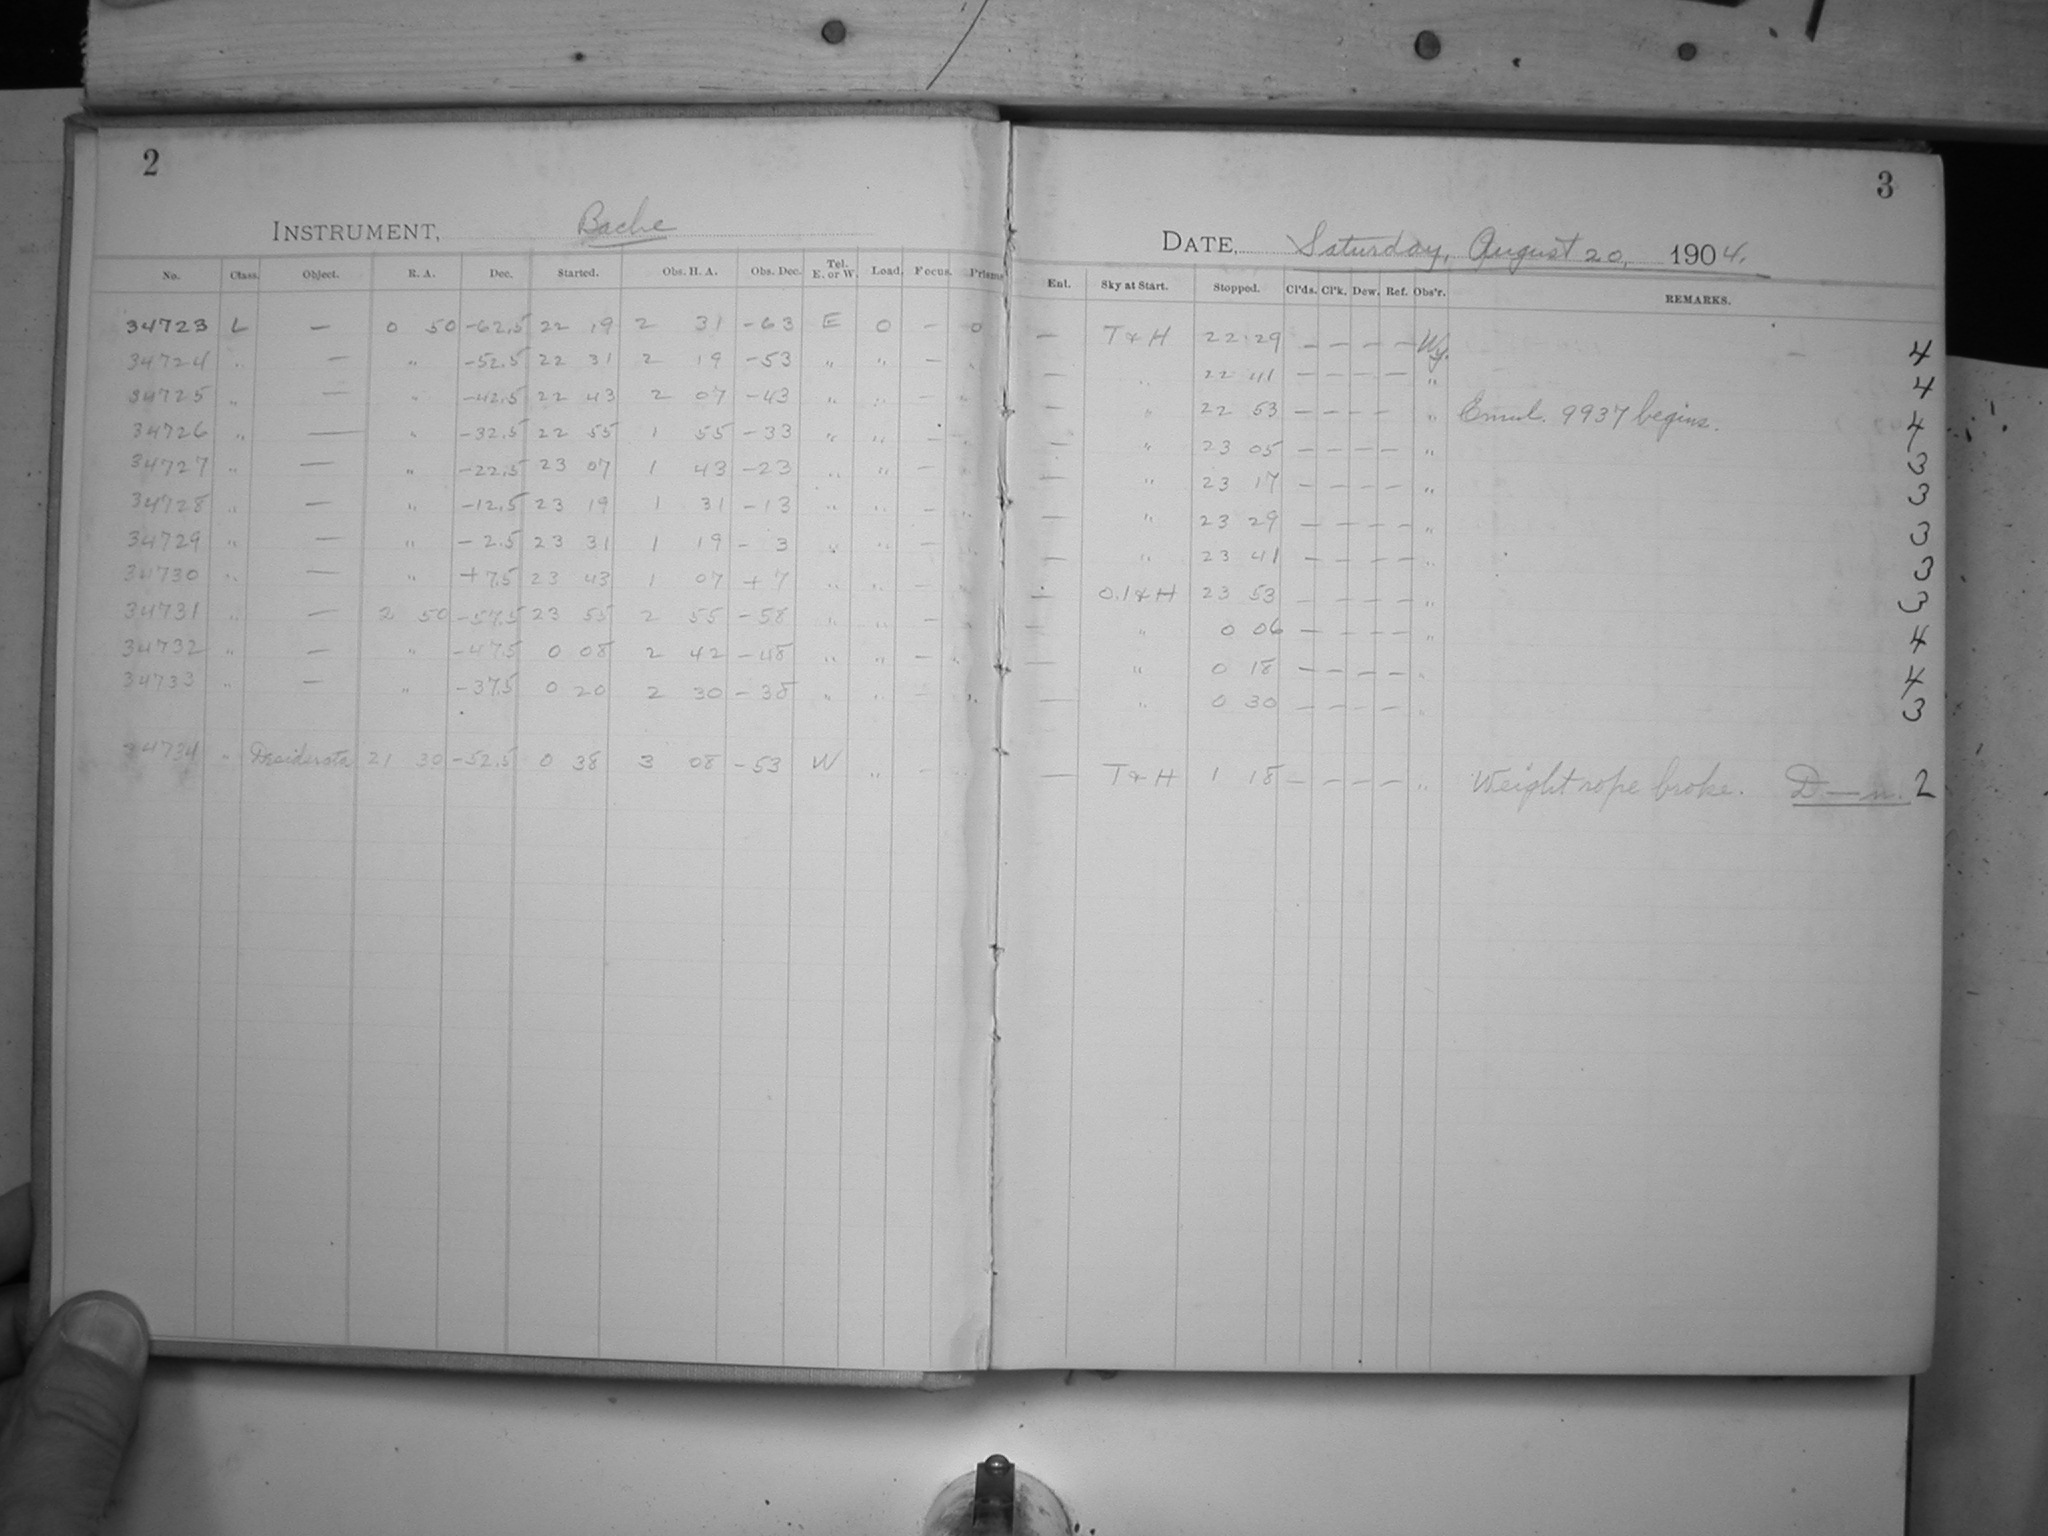 2
INSTRUMENT, Bache
No. Class. Object. R. A. Dec. Started. Obs. H. A. Obs. Dec. Tel. E. or W. Load. Focus. Prisms
34723 L — 0 50 -62.5 22 19 2 31 -63 E 0 — 0
34724 " — " -52.5 22 31 2 19 -53 " " — "
34725 " — " -42.5 22 43 2 07 -43 " " — "
34726 " — " -32.5 22 55 1 55 -33 " " — "
34727 " — " -22.5 23 07 1 43 -23 " " — "
34728 " — " -12.5 23 19 1 31 -13 " " — "
34729 " — " -2.5 23 31 1 19 - 3 " " — "
34730 " — " +7.5 23 43 1 07 + 7 " " — "
34731 " — 2 50 -57.5 23 55 2 55 -58 " " — "
34732 " — " -47.5 0 08 2 42 -48 " " — "
34733 " — " -37.5 0 20 2 30 -38 " " — "
34734 " Desiderata 21 30 -52.5 0 38 3 08 -53 W " — "
3
DATE, Saturday, August 20, 1904.
Enl. Sky at Start. Stopped. Cl'ds. Cl'k. Dew. Ref. Obs'r. REMARKS.
— T & H 22 29 — — — — Wy. — 4
— " 22 41 — — — — " 4
— " 22 53 — — — — " Emul. 9937 begins. 4
— " 23 05 — — — — " 3
— " 23 17 — — — — " 3
— " 23 29 — — — — " 3
— " 23 41 — — — — " 3
— 0.1 & H 23 53 — — — — " 3
— " 0 06 — — — — " 4
— " 0 18 — — — — " 4
— " 0 30 — — — — " 3
— T & H 1 18 — — — — " Weight rope broke. D—n. 2